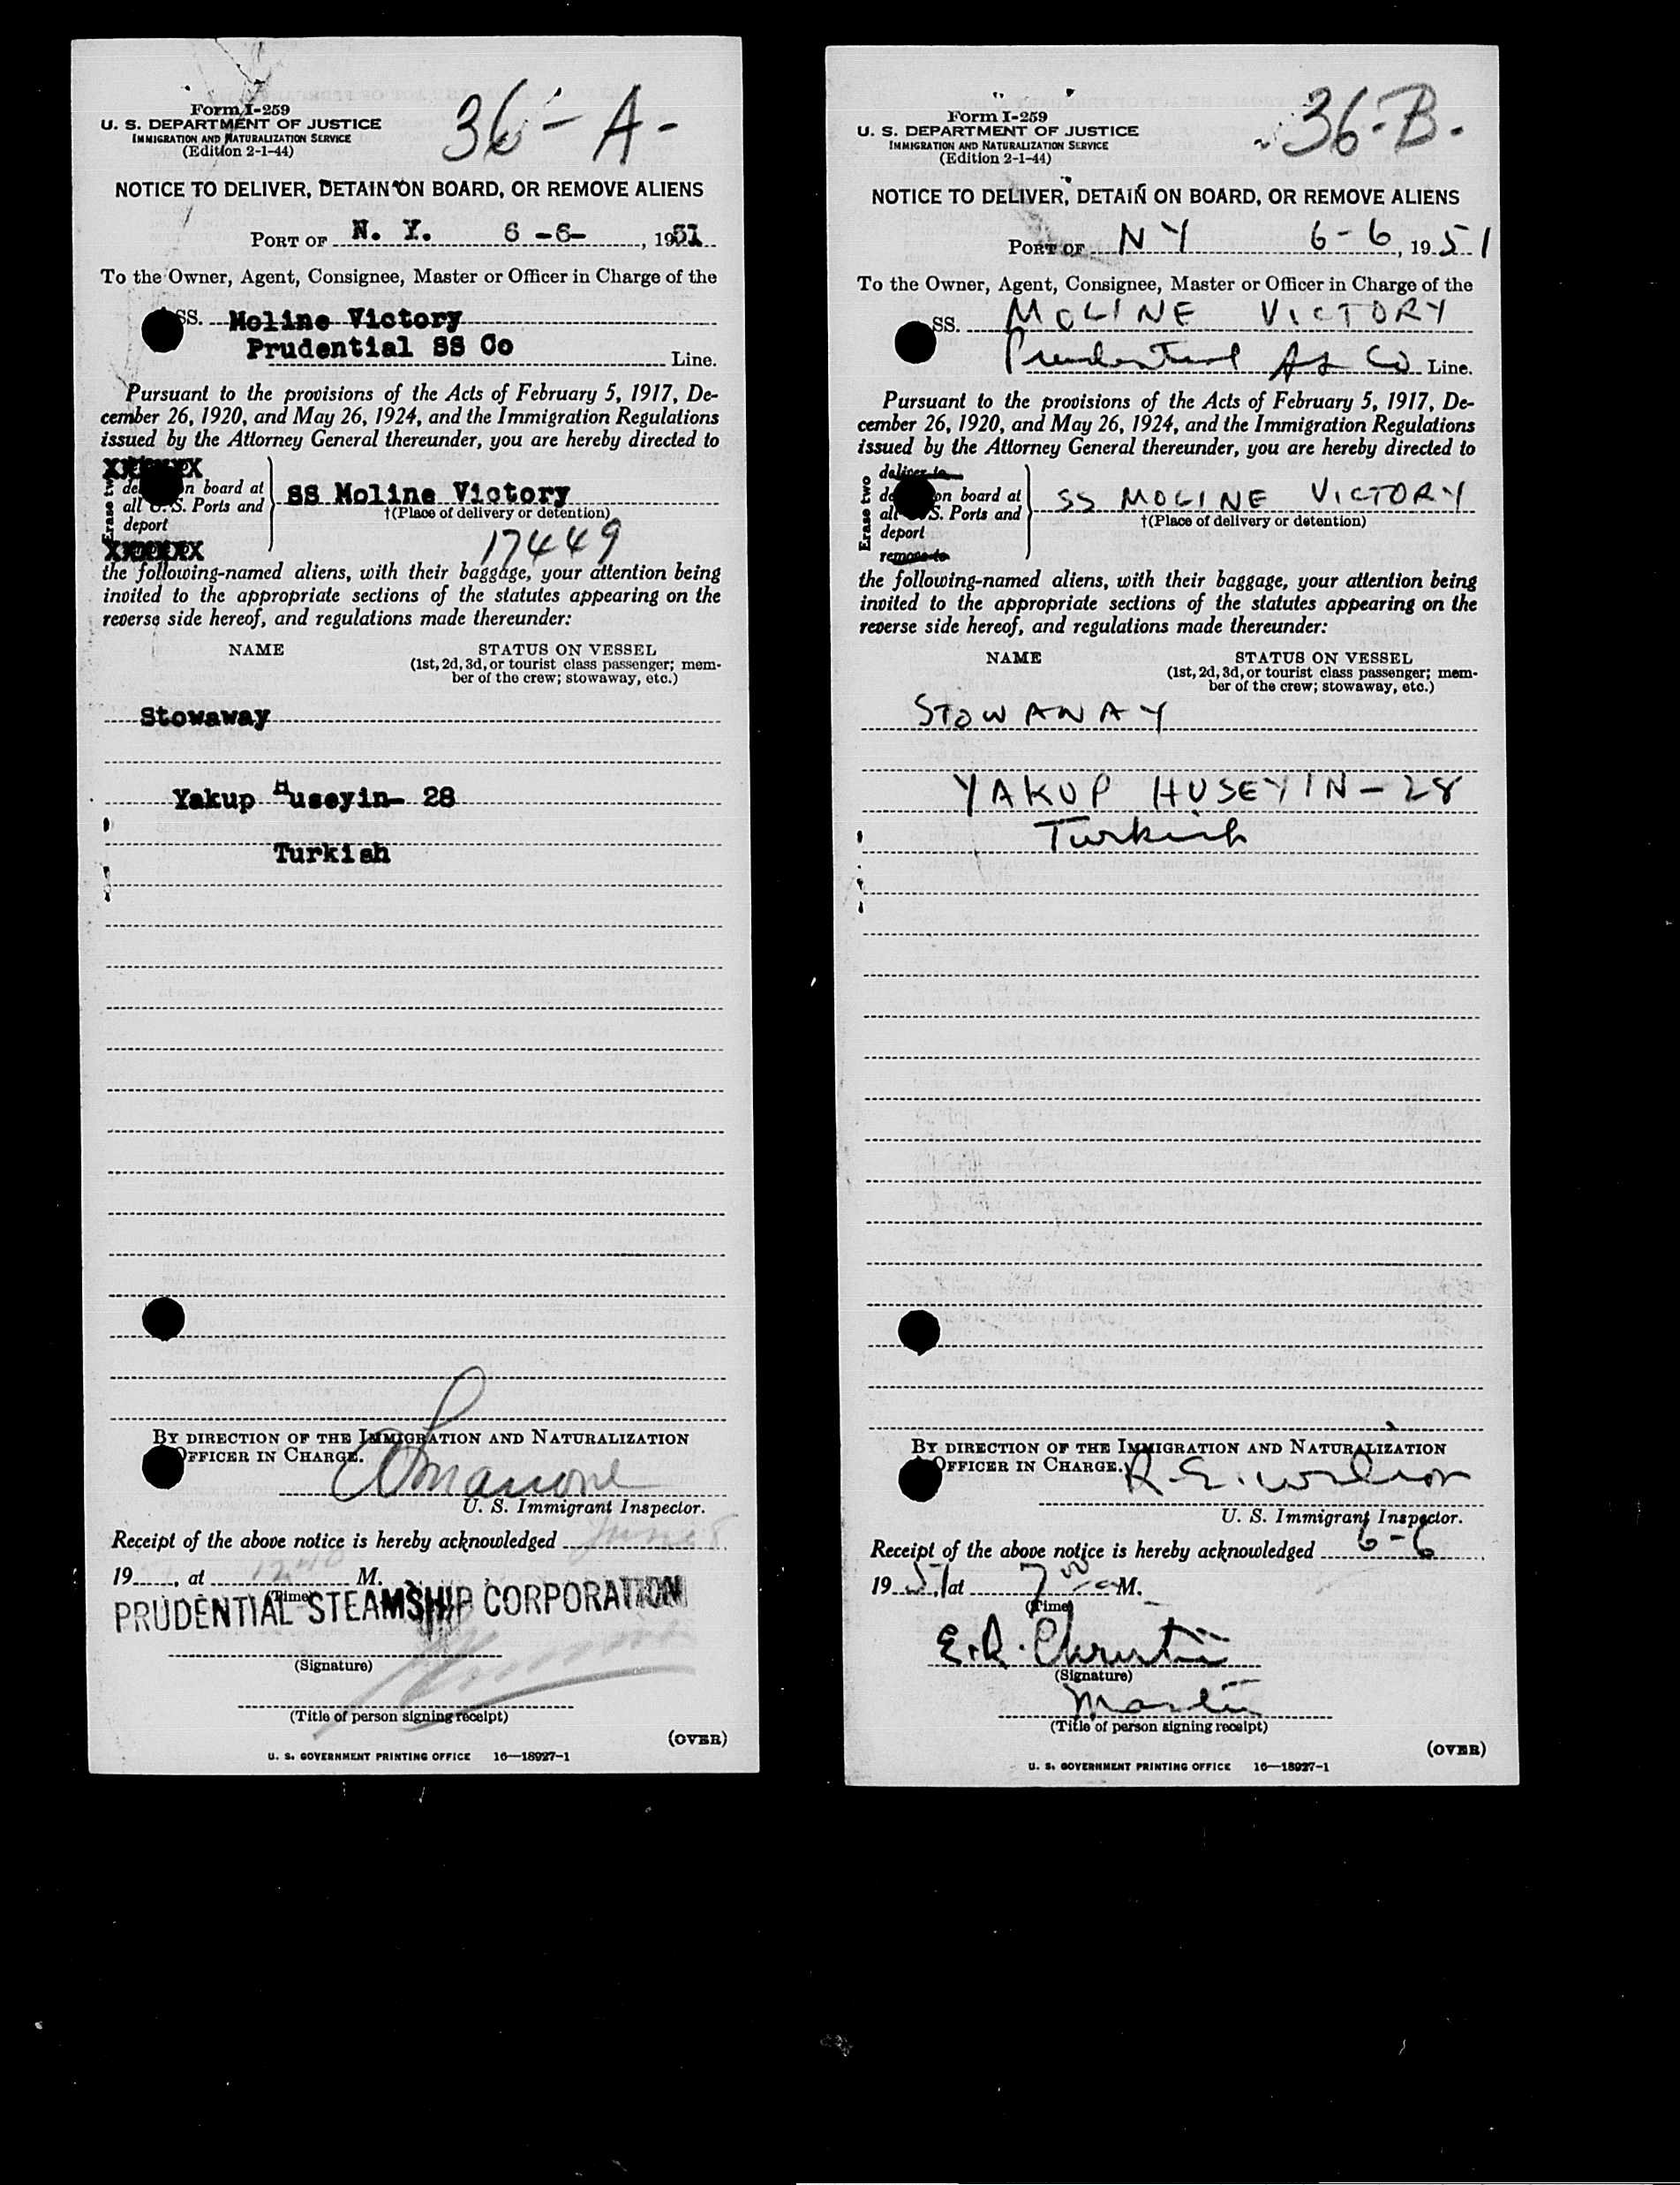 Form I-259
U. S. DEPARTMENT OF JUSTICE
IMMIGRATION AND NATURALIZATION SERVICE
(Edition 2-1-44)
36-A-
NOTICE TO DELIVER, DETAIN ON BOARD, OR REMOVE ALIENS
PORT OF N. Y. 6-6-, 1951
To the Owner, Agent, Consignee, Master or Officer in Charge of the
SS. Moline Victory
Prudential SS Co Line.
Pursuant to the provisions of the Acts of February 5, 1917, De-
cember 26, 1920, and May 26, 1924, and the Immigration Regulations
issued by the Attorney General thereunder, you are hereby directed to
Erase two
n board at
all U. S. Ports and
deport
SS Moline Victory
†(Place of delivery or detention)
17449
the following-named aliens, with their baggage, your attention being
invited to the appropriate sections of the statutes appearing on the
reverse side hereof, and regulations made thereunder:
NAME STATUS ON VESSEL
(1st, 2d, 3d, or tourist class passenger; mem-
ber of the crew; stowaway, etc.)
Stowaway
Yakup Huseyin- 28
Turkish
BY DIRECTION OF THE IMMIGRATION AND NATURALIZATION
OFFICER IN CHARGE.
U. S. Immigrant Inspector.
Receipt of the above notice is hereby acknowledged June
19 , at 1240 M.
(Time)
PRUDENTIAL STEAMSHIP CORPORATION
(Signature)
(Title of person signing receipt)
(OVER)
U. S. GOVERNMENT PRINTING OFFICE 16—18927-1
Form I-259
U. S. DEPARTMENT OF JUSTICE
IMMIGRATION AND NATURALIZATION SERVICE
(Edition 2-1-44)
36-B-
NOTICE TO DELIVER, DETAIN ON BOARD, OR REMOVE ALIENS
PORT OF N Y 6-6, 1951
To the Owner, Agent, Consignee, Master or Officer in Charge of the
SS. MOLINE VICTORY
Prudential SS Co Line.
Pursuant to the provisions of the Acts of February 5, 1917, De-
cember 26, 1920, and May 26, 1924, and the Immigration Regulations
issued by the Attorney General thereunder, you are hereby directed to
Erase two
deliver to
on board at
all U. S. Ports and
deport
remove to
SS MOLINE VICTORY
†(Place of delivery or detention)
the following-named aliens, with their baggage, your attention being
invited to the appropriate sections of the statutes appearing on the
reverse side hereof, and regulations made thereunder:
NAME STATUS ON VESSEL
(1st, 2d, 3d, or tourist class passenger; mem-
ber of the crew; stowaway, etc.)
STOWAWAY
YAKUP HUSEYIN-28
Turkish
BY DIRECTION OF THE IMMIGRATION AND NATURALIZATION
OFFICER IN CHARGE.
R. E. Wilson
U. S. Immigrant Inspector.
Receipt of the above notice is hereby acknowledged 6-6
1951 at 7 00 a M.
(Time)
E.R. Christie
(Signature)
Master
(Title of person signing receipt)
(OVER)
U. S. GOVERNMENT PRINTING OFFICE 16—18927-1